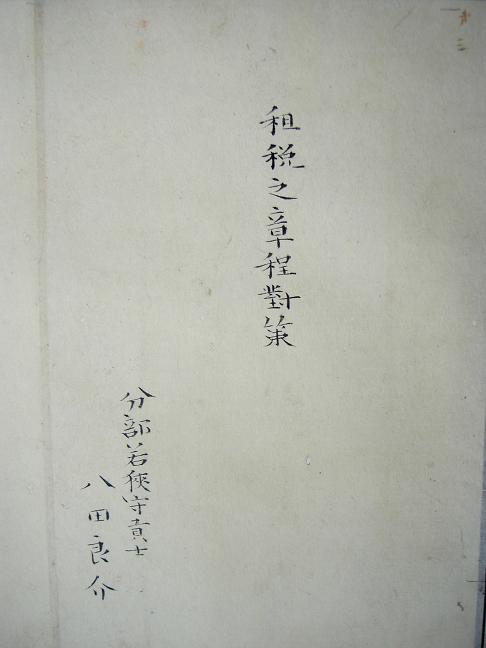 租税之章程對策
分部若狹守貢士
八田良介